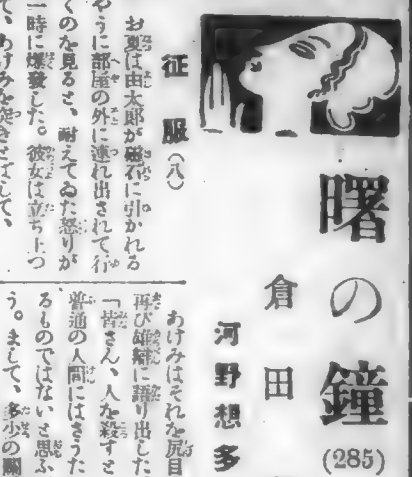 曙の鐘
(285)
倉田
河野想多
征服(八)
お夏は由太郎が磁石に引かれる
やうに部屋の外に連れ出されて行
くのを見ると、耐えてゐた怒りが
一時に爆發した。彼女は立ち上つ
て、あけみを突きとばして、
あけみはそれを尻目
再び雄辯に語り出した
「皆さん、人を殺すと
普通の人間にはさうた
るものではないと思ふ
う。まして、多少の關